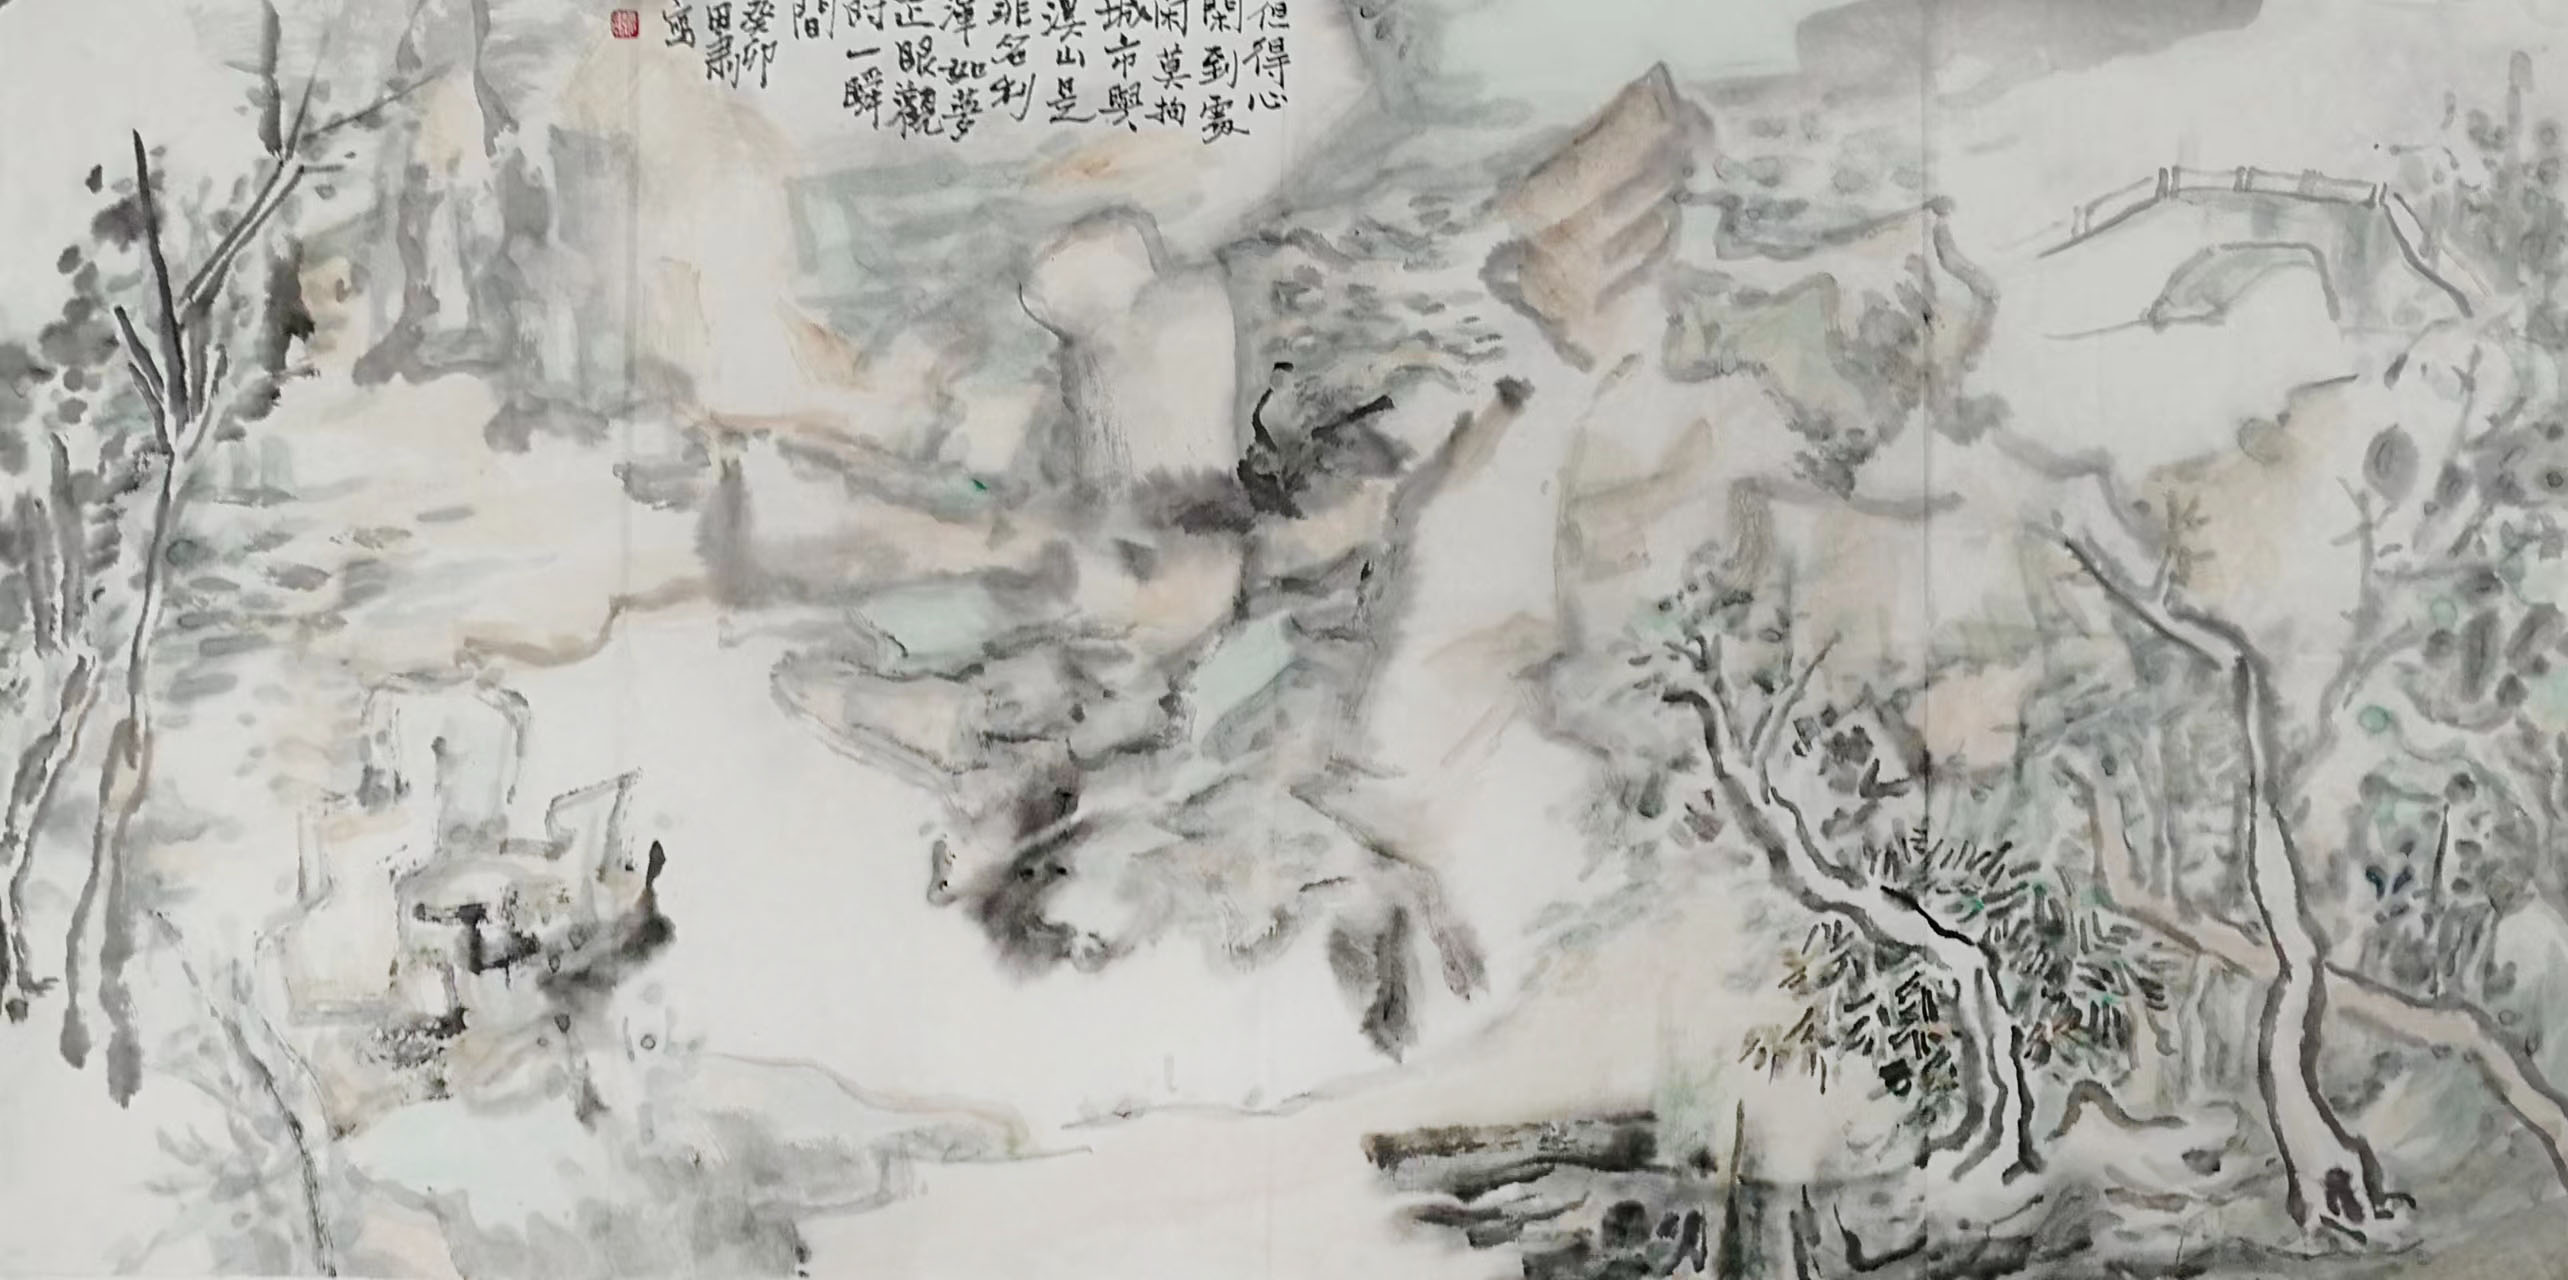 但得心
閑到處
閑莫拘
城市與
溪山是
非名利
渾如夢
正眼觀
時一瞬
間
癸卯
田肅
寫